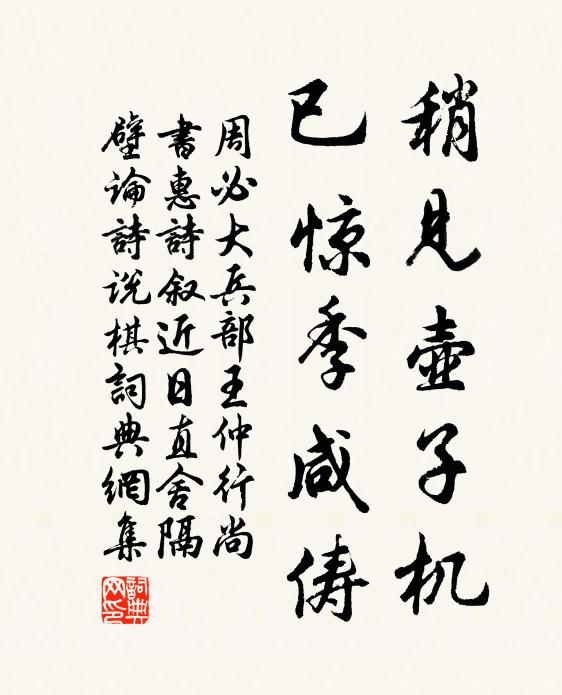 稍见壶子机
已惊季咸俦
周必大兵部王仲行尚
書惠詩叙近日直舍隔
壁論詩说棋詞典網集
詞典网印